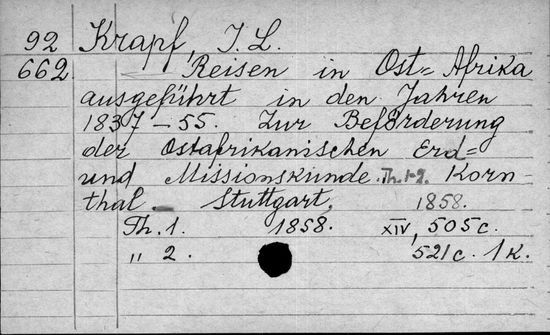 92 Krapf, J. L.
662 Reisen in Ost= Afrika
ausgeführt in den Jahren
1837–55. Zur Beförderung
der Ostafrikanischen Erd=
und Missionskunde. Th. 1-2. Korn-
thal – Stuttgart, 1858.
Th. 1. 1858. XIV, 505 c.
„ 2. 521 c. 1 K.